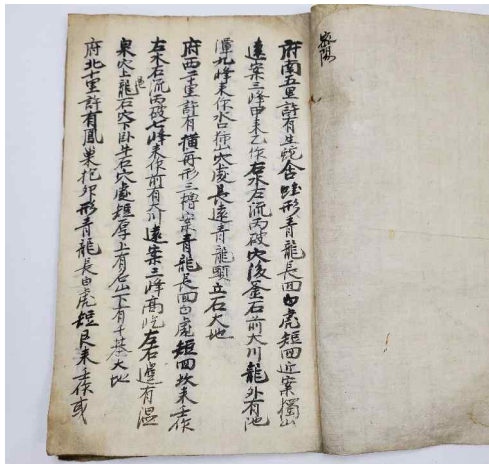 陽
府南五里許有生蛇含蛙形青龍長回白虎短回近案獨山
遠案三峰甲来乙作右水左流丙破穴後釜石前大川龍外有池
潭九峰来作水口獨山穴處長遠青龍頭立石大地
府西二十里許有橫舟形三檣案青龍長回白虎短回坎来壬作
左水右流丙破七峰来作前有大川遠案三峰高屹左右邊有温
泉穴上龍石穴下卧牛石穴處短厚上有石山下有千基大地
府北十里許有鳳巢抱卵形青龍長白虎短艮来壬作或